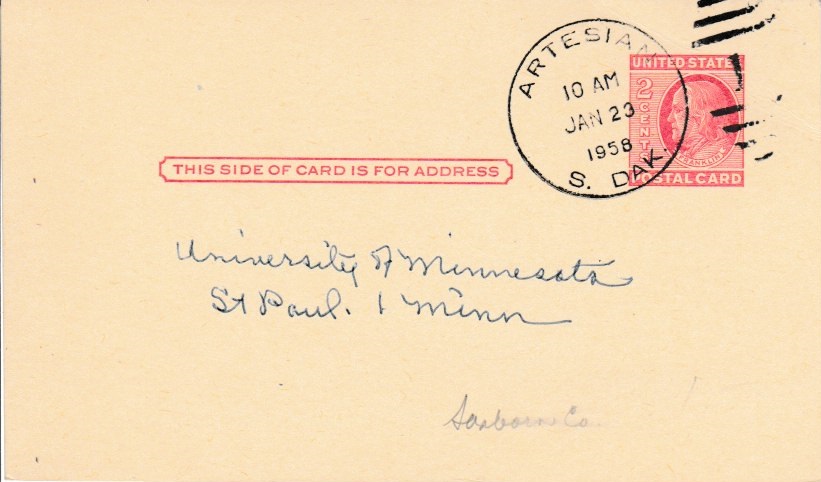 ARTESIAN
10 AM
JAN 23
1958
S. DAK.
UNITED STATES
2 CENTS
FRANKLIN
POSTAL CARD
THIS SIDE OF CARD IS FOR ADDRESS
University of Minnesota
St Paul. 1 Minn
Co.